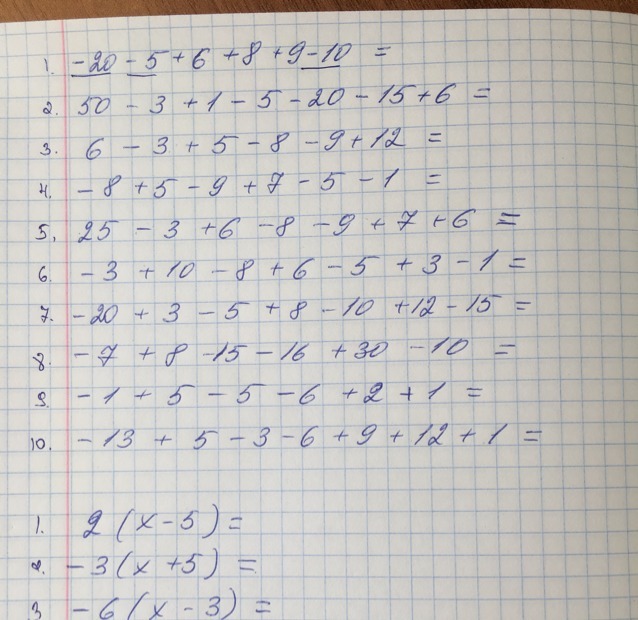 1. -20 - 5 + 6 + 8 + 9 - 10 =
2. 50 - 3 + 1 - 5 - 20 - 15 + 6 =
3. 6 - 3 + 5 - 8 - 9 + 12 =
4. - 8 + 5 - 9 + 7 - 5 - 1 =
5. 25 - 3 + 6 - 8 - 9 + 7 + 6 =
6. - 3 + 10 - 8 + 6 - 5 + 3 - 1 =
7. - 20 + 3 - 5 + 8 - 10 + 12 - 15 =
8. - 7 + 8 - 15 - 16 + 30 - 10 =
9. - 1 + 5 - 5 - 6 + 2 + 1 =
10. - 13 + 5 - 3 - 6 + 9 + 12 + 1 =
1. 2 (x - 5) =
2. - 3 (x + 5) =
3 - 6 (x - 3) =